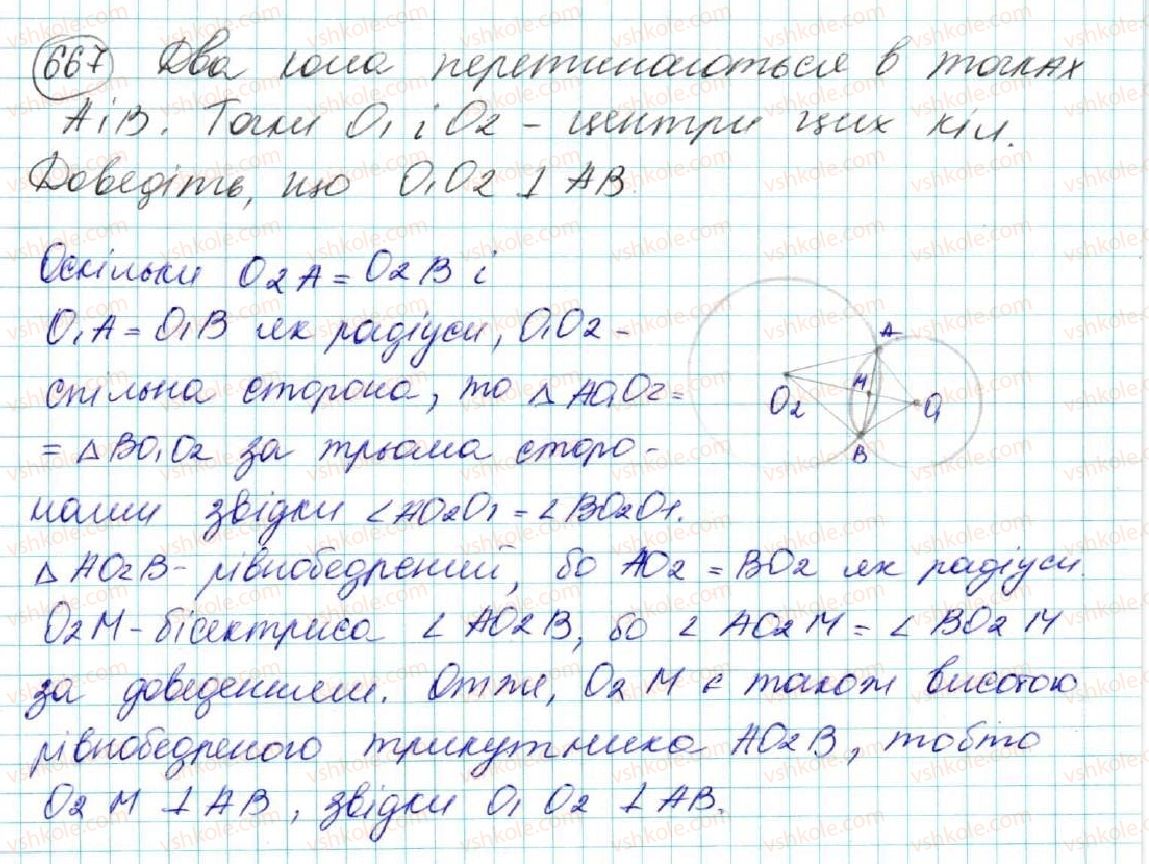 667 Два кола перетинаються в точках
А і В. Точки O1 і O2 – центри цих кіл.
Доведіть, що O1O2 ⊥ AB.
Оскільки O2A = O2B і
O1A = O1B як радіуси, O1O2 –
спільна сторона, то △AO1O2 =
= △BO1O2 за трьома сторо-
нами звідки ∠AO2O1 = ∠BO2O1.
△AO2B – рівнобедрений, бо AO2 = BO2 як радіуси.
O2M – бісектриса ∠AO2B, бо ∠AO2M = ∠BO2M
за доведенням. Отже, O2M є також висотою
рівнобедреного трикутника AO2B, тобто
O2M ⊥ AB, звідки O1O2 ⊥ AB.
A
M
O2
O1
B
vshkole.com